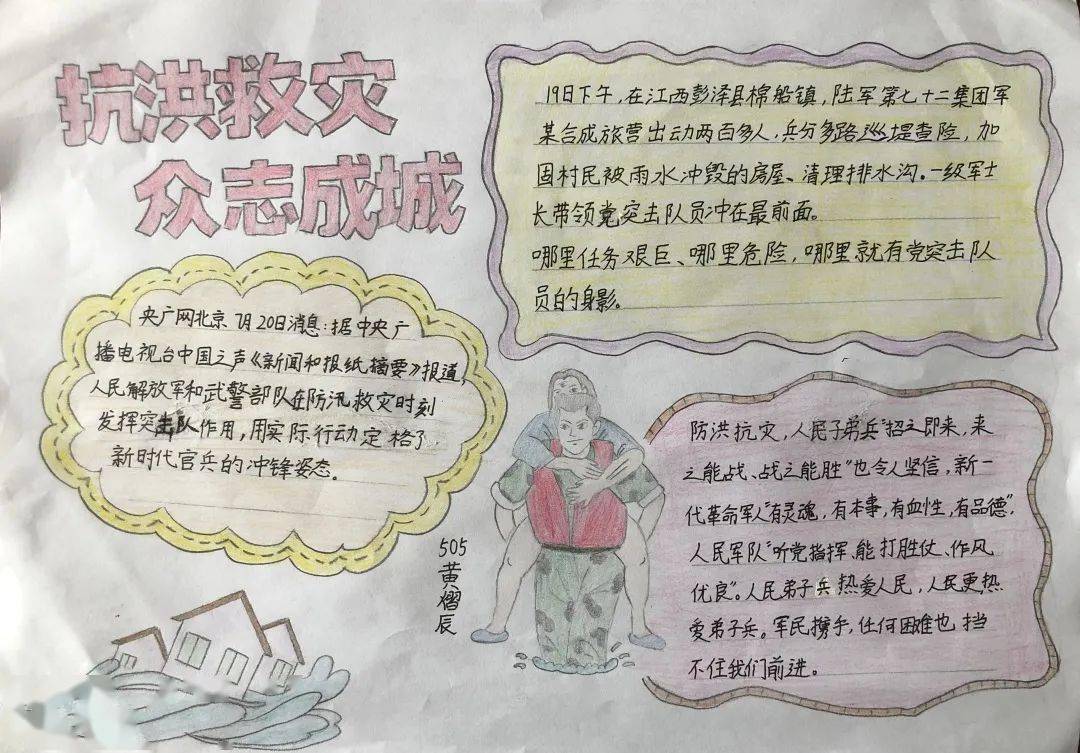 抗洪救灾
众志成城
19日下午，在江西彭泽县棉船镇，陆军第七十二集团军
某合成旅营出动两百多人，兵分多路巡堤查险，加
固村民被雨水冲毁的房屋、清理排水沟。一级军士
长带领党突击队员冲在最前面。
哪里任务艰巨、哪里危险，哪里就有党突击队
员的身影。
央广网北京7月20日消息：据中央广
播电视台中国之声《新闻和报纸摘要》报道，
人民解放军和武警部队在防汛救灾时刻
发挥突击队作用，用实际行动定格了
新时代官兵的冲锋姿态。
防洪抗灾，人民子弟兵“招之即来，来
之能战、战之能胜”也令人坚信，新一
代革命军人“有灵魂，有本事，有血性，有品德”，
人民军队“听党指挥、能打胜仗、作风
优良”。人民弟子兵热爱人民，人民更热
爱弟子兵。军民携手，任何困难也挡
不住我们前进。
505
黄熠辰